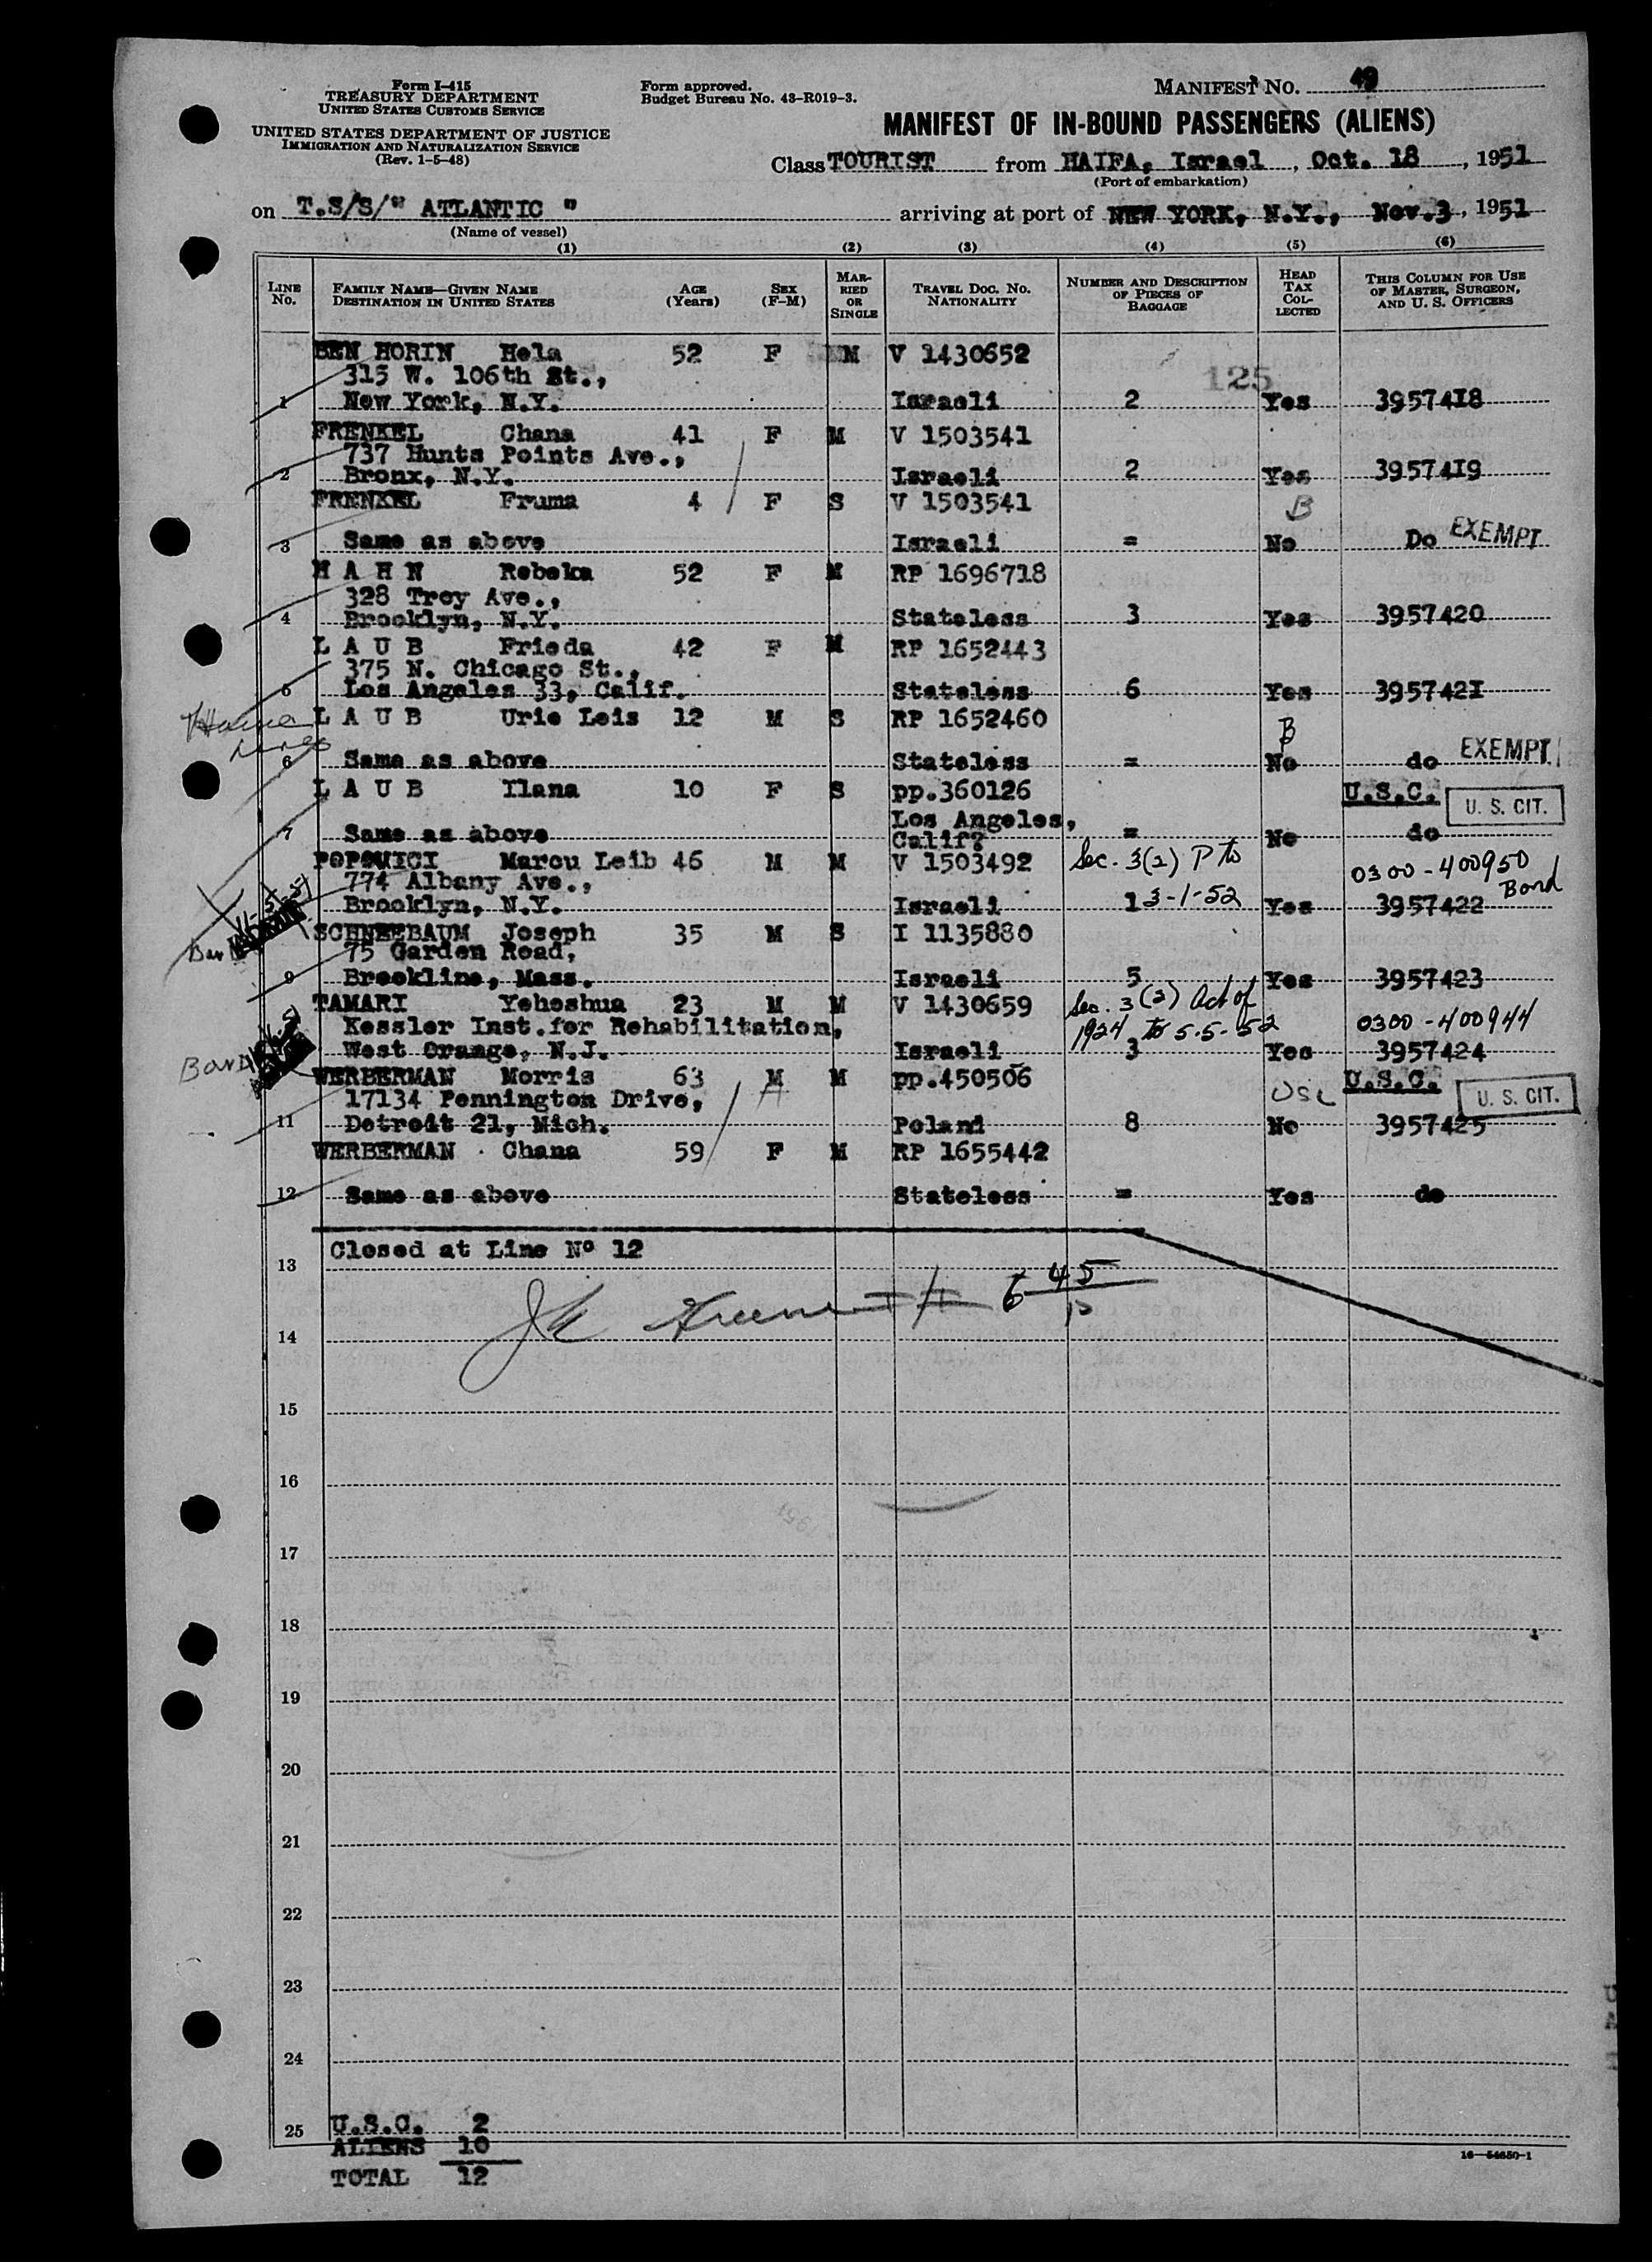 Form I-415
TREASURY DEPARTMENT
UNITED STATES CUSTOMS SERVICE
UNITED STATES DEPARTMENT OF JUSTICE
IMMIGRATION AND NATURALIZATION SERVICE
(Rev. 1-5-48)
Form approved.
Budget Bureau No. 43-R019-3.
MANIFEST NO. 49
MANIFEST OF IN-BOUND PASSENGERS (ALIENS)
Class TOURIST from HAIFA, Israel, Oct. 18, 1951
(Port of embarkation)
on T.S/S/" ATLANTIC " arriving at port of NEW YORK, N.Y., Nov.3, 1951
(Name of vessel)
(1) (2) (3) (4) (5) (6)
LINE No. FAMILY NAME—GIVEN NAME DESTINATION IN UNITED STATES AGE (Years) SEX (F-M) MARRIED OR SINGLE TRAVEL DOC. NO. NATIONALITY NUMBER AND DESCRIPTION OF PIECES OF BAGGAGE HEAD TAX COLLECTED THIS COLUMN FOR USE OF MASTER, SURGEON, AND U. S. OFFICERS
BEN HORIN Hela 52 F M V 1430652
315 W. 106th St., 125
1 New York, N.Y. Israeli 2 Yes 3957418
FRENKEL Chana 41 F M V 1503541
737 Hunts Points Ave.,
2 Bronx, N.Y. Israeli 2 Yes 3957419
FRENKEL Fruma 4 F S V 1503541 B
3 Same as above Israeli = No Do EXEMPT
H A H N Rebeka 52 F M RP 1696718
328 Troy Ave.,
4 Brooklyn, N.Y. Stateless 3 Yes 3957420
L A U B Frieda 42 F M RP 1652443
375 N. Chicago St.,
5 Los Angeles 33, Calif. Stateless 6 Yes 3957421
L A U B Urie Leis 12 M S RP 1652460 B
6 Same as above Stateless = No do EXEMPT
L A U B Ilana 10 F S pp.360126 U.S.C. U. S. CIT.
Los Angeles,
7 Same as above Calif? = No do
POPOVICI Marcu Leib 46 M M V 1503492 Sec. 3(2) P to 0300-400950
774 Albany Ave., Bond
Brooklyn, N.Y. Israeli 1 3-1-52 Yes 3957422
SCHNEEBAUM Joseph 35 M S I 1135880
75 Garden Road,
9 Brookline, Mass. Israeli 5 Yes 3957423
TAMARI Yehoshua 23 M M V 1430659 Sec. 3 (2) Act of
Kessler Inst.for Rehabilitation, 1924 to 5-5-52 0300-400944
Bond West Orange, N.J. Israeli 3 Yes 3957424
WERBERMAN Morris 63 M M pp.450506 USC U.S.C. U. S. CIT.
17134 Pennington Drive,
11 Detroit 21, Mich. Poland 8 No 3957425
WERBERMAN Chana 59 F M RP 1655442
12 Same as above Stateless = Yes do
Closed at Line Nº 12
13
45
14
15
16
17
18
19
20
21
22
23
24
25 U.S.C. 2
ALIENS 10
TOTAL 12
16—54650-1